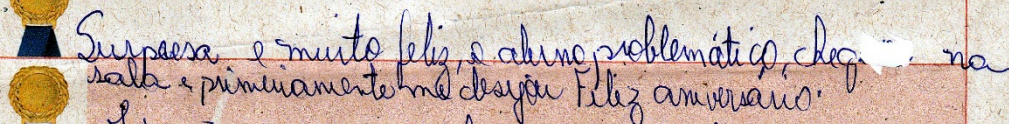 Surpresa e muito feliz, o aluno problemático, cheg na
sala e primeiramente me desejou Feliz aniversário.